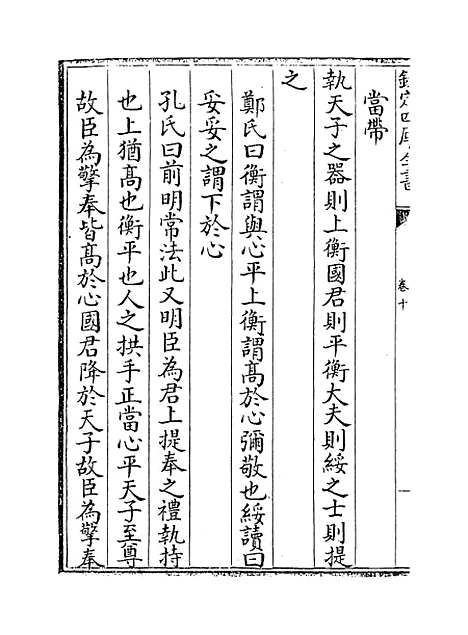 欽定四庫全書
卷十
當帶
執天子之器則上衡國君則平衡大夫則綏之士則提
之
鄭氏曰衡謂與心平上衡謂髙於心彌敬也綏讀曰
妥妥之謂下於心
孔氏曰前明常法此又明臣為君上提奉之禮執持
也上猶髙也衡平也人之拱手正當心平天子至尊
故臣為擎奉皆髙於心國君降於天子故臣為擎奉